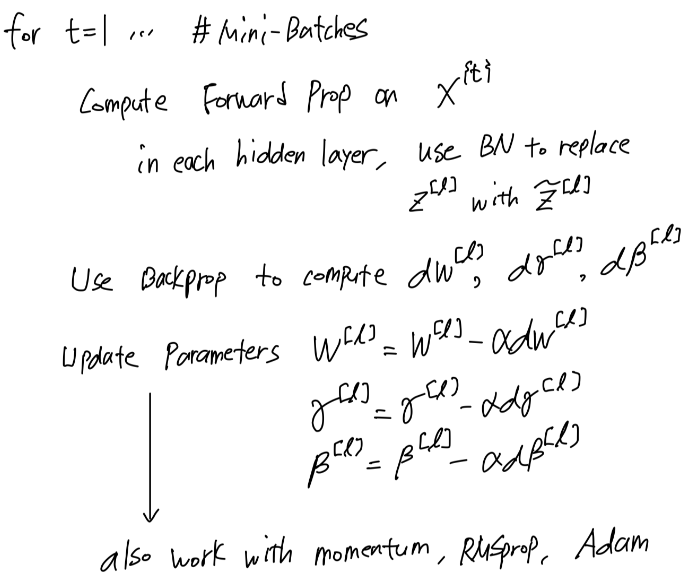 for t=1 ... # Mini-Batches
Compute Forward Prop on X^{t}
in each hidden layer, use BN to replace
z^[l] with z̃^[l]
Use Backprop to compute dw^[l], dγ^[l], dβ^[l]
Update Parameters W^[l] = W^[l] - αdw^[l]
γ^[l] = γ^[l] - αdγ^[l]
β^[l] = β^[l] - αdβ^[l]
also work with momentum, RMSprop, Adam